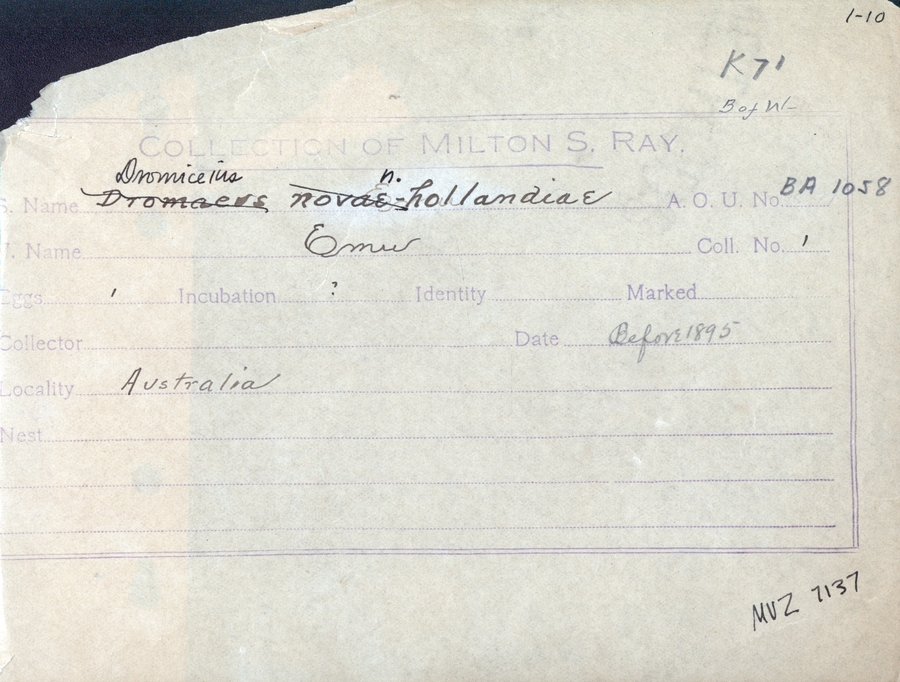 1-10
K71
B of W-
COLLECTION OF MILTON S. RAY.
Dromiceius n.
S. Name Dromaeus novae-hollandiae A. O. U. No. BA 1058
. Name Emu Coll. No. 1
Eggs 1 Incubation ? Identity Marked
Collector Date Before 1895
Locality Australia
Nest
MVZ 7137